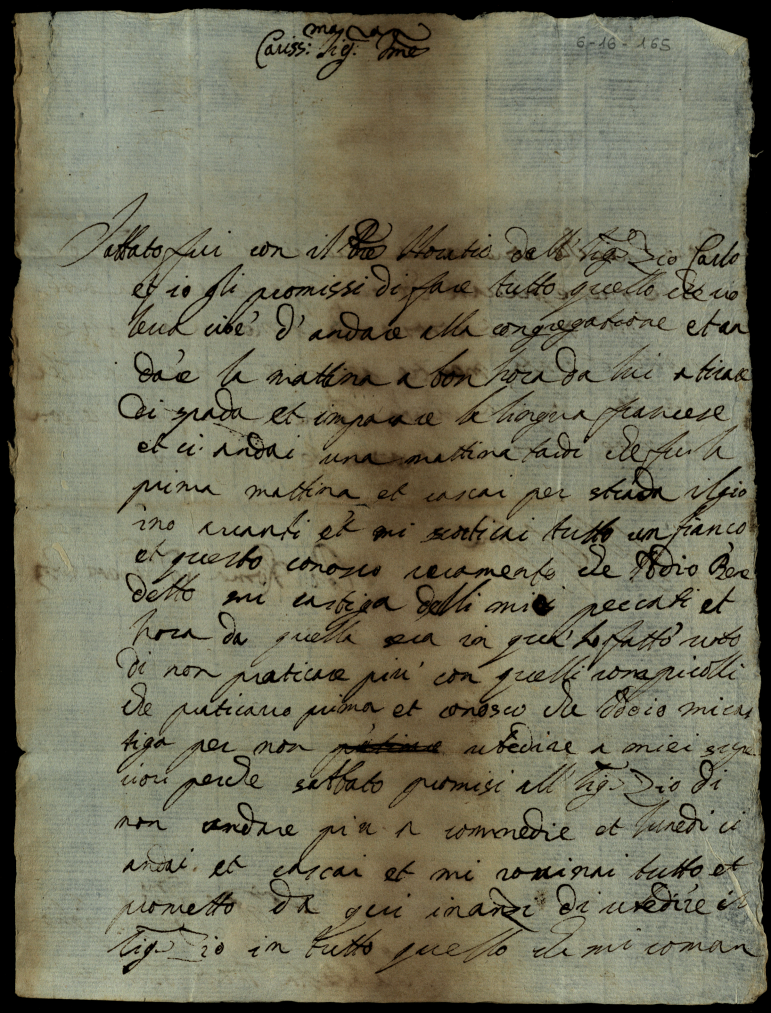 mag.re
Cariss: Sig: 
6-16-165
Sabbato fui con il Pre Horatio dell' Sig.r Zio Carlo
et io gli promissi di fare tutto quello che vo
leva cioè d'andare alla congregatione et an
dare la mattina a bon hora da lui a tirare
di spada et imparare la lingua francese
et ci andai una mattina tardi che fu la
prima mattina et cascai per strada il gio
rno avanti et mi scorticai tutto un fianco
et questo conosco veramente che Iddio Bene
detto mi castiga delli miei peccati et
hora da quella sera in quà ho fatto voto
di non praticare più con quelli rompicolli
che praticavo prima et conosco che Iddio mi cas
tiga per non ubedire a miei supe
riori perche sabbato promisi all' Sig.r Zio di
non andare più a commedie et lunedi ci
andai et cascai et mi rovinai tutto et
prometto da qui inanzi di ubedire il
Sig.r Zio in tutto quello che mi coman